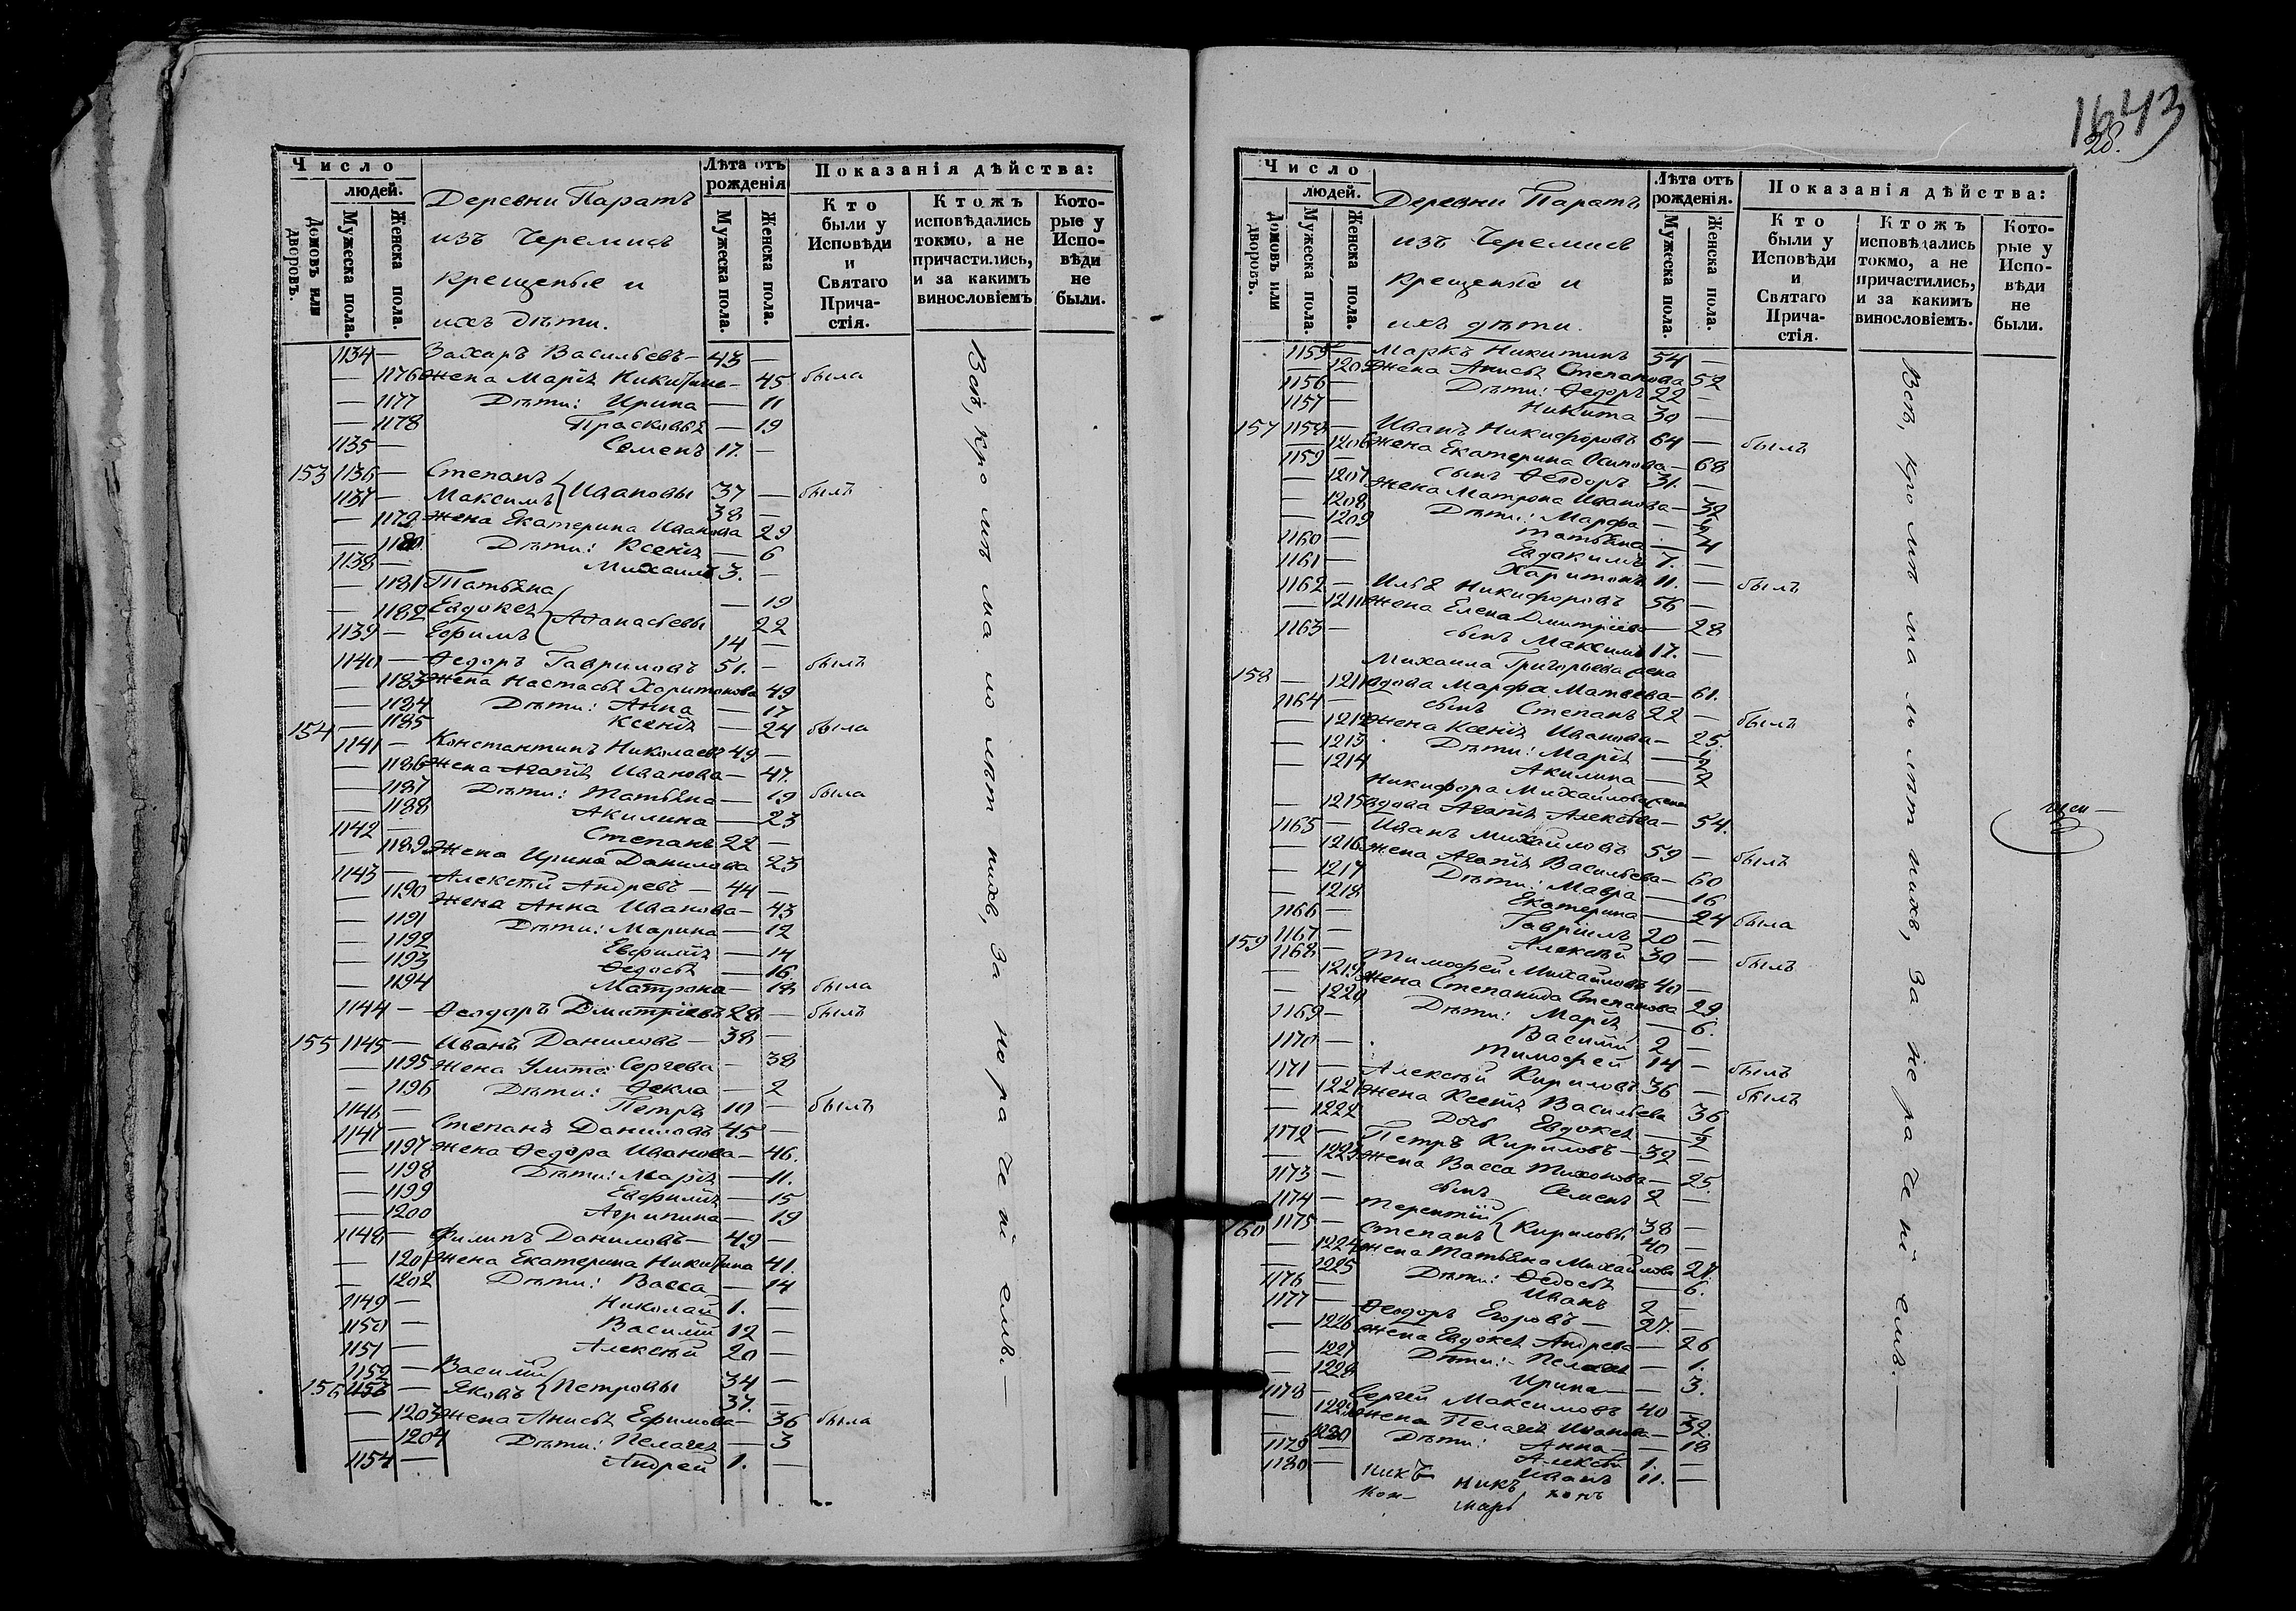 Число
людей.
Домовъ или дворовъ.
Мужеска пола.
Женска пола.
Деревни Паратъ
изъ Черемисъ
крещеные и
ихъ дѣти.
Лѣта отъ рожденія
Мужеска пола.
Женска пола.
Показанія дѣйства:
Кто были у Исповѣди и Святаго Причастія.
Ктожъ исповѣдались токмо, а не причастились, и за какимъ винословіемъ
Которые у Исповѣди не были.
1134 — Захаръ Васильевъ — 43 —
— 1176 Жена Марія Никитина — 45 была
— 1177 Дѣти: Ирина — 11
— 1178 Прасковья — 19
1135 — Семенъ 17. —
153 1136 — Степанъ
1137 — Максимъ } Ивановы 37 — былъ
38 —
— 1179 Жена Екатерина Иванова 29
— 1180 Дѣти: Ксенія — 6
1138 — Михаилъ 3. —
— 1181 Татьяна — 19
— 1182 Евдокея } Аѳанасьевы 22
1139 — Ефимъ 14 —
1140 — Ѳедоръ Гавриловъ 51. — былъ
— 1183 Жена Настасья Харитонова 49
— 1184 Дѣти: Анна — 17
154 — 1185 Ксенія — 24 была
1141 — Константинъ Николаевъ 49 —
— 1186 Жена Агапія Иванова — 47.
— 1187 Дѣти: Татьяна — 19 была
— 1188 Акилина — 23
1142 — Степанъ 22 —
— 1189 Жена Ирина Данилова 23
1143 — Алексѣй Андревъ — 44 —
— 1190 Жена Анна Иванова — 43
— 1191 Дѣти: Марина — 12
— 1192 Евфимія — 14
— 1193 Ѳедосья — 16.
— 1194 Матрона — 18 была
1144 — Ѳеодоръ Дмитріевъ 28 — былъ
155 1145 — Иванъ Даниловъ — 38 —
— 1195 Жена Улита Сергева — 38
— 1196 Дѣти: Ѳекла — 2
1146 — Петръ 10 — былъ
1147 — Степанъ Даниловъ 45 —
— 1197 Жена Ѳедора Иванова — 46.
— 1198 Дѣти: Марія — 11.
— 1199 Евфимія — 15
— 1200 Агрипина — 19
1148 — Филипъ Даниловъ — 49 —
— 1201 Жена Екатерина Никитина 41.
— 1202 Дѣти: Васса — 14
1149 — Николай 1. —
1150 — Василій 12 —
1151 — Алексѣй 20 —
1152 — Василій 34 —
156 1153 — Яковъ } Петровы 37. —
— 1203 Жена Анисья Ефимова — 36 была
— 1204 Дѣти: Пелагея — 3
1154 — Андрей 1. —
Всѣ, кромѣ малолѣтнихъ, за нераченіемъ. —
1643
28.
Число
людей.
Домовъ или дворовъ.
Мужеска пола.
Женска пола.
Деревни Паратъ
изъ Черемисъ
крещеные и
ихъ дѣти.
Лѣта отъ рожденія.
Мужеска пола.
Женска пола.
Показанія дѣйства:
Кто были у Исповѣди и Святаго Причастія.
Ктожъ исповѣдались токмо, а не причастились, и за какимъ винословіемъ.
Которые у Исповѣди не были.
1155 — Маркъ Никитинъ 54 —
— 1205 Жена Анисья Степанова 52
1156 — Дѣти: Ѳедоръ 22 —
1157 — Никита 30 —
157 1158 — Иванъ Никифоровъ 64 — былъ
— 1206 Жена Екатерина Осипова — 68
1159 — сынъ Ѳеодоръ 31. —
— 1207 Жена Матрона Иванова — 32
— 1208 Дѣти: Марфа —
— 1209 Татьяна — 4
1160 — Евдакимъ 7. —
1161 — Харитонъ 11. — былъ
1162 — Илья Никифоровъ 56 —
— 1210 Жена Елена Дмитріева — 28
1163 — сынъ Максимъ 17. —
Михаила Григорьева жена
158 — 1211 вдова Марфа Матвева — 61.
1164 — сынъ Степанъ 22 — былъ
— 1212 Жена Ксенія Иванова — 25.
— 1213 Дѣти: Марія — 1/2
— 1214 Акилина — 2
Никифора Михайлова жена
— 1215 вдова Агапія Алексѣева — 54.
1165 — Иванъ Михайловъ 59 — былъ
— 1216 Жена Агапія Васильева — 60
— 1217 Дѣти: Мавра — 16
— 1218 Екатерина — 24 была
1166 — Гавріилъ 20 —
1167 — Алексѣй 30 — былъ
159 1168 — Тимофей Михайловъ 40 —
— 1219 Жена Степанида Степанова 29
— 1220 Дѣти: Марія — 6.
1169 — Василій 2 —
1170 — Тимофей 14 — былъ
1171 — Алексѣй Кириловъ 36 — былъ
— 1221 Жена Ксенія Васильева 36
— 1222 Дочь Евдокея — 1/2
1172 — Петръ Кириловъ — 32 —
— 1223 Жена Васса Тихонова — 25.
1173 — сынъ Семенъ 2 —
1174 — Терентій 38 —
160 1175 — Степанъ } Кириловы 40 —
— 1224 Жена Татьяна Михайлова 27.
— 1225 Дѣти: Ѳедосья — 6.
1176 — Иванъ 2 —
1177 — Ѳеодоръ Егоровъ — 27. —
— 1226 Жена Евдокея Андрева — 26
— 1227 Дѣти: Пелагея — 1.
— 1228 Ирина — 3.
1178 — Сергей Максимовъ 40 —
— 1229 Жена Пелагея Иванова — 32.
— 1230 Дѣти: Анна — 18
1179 — Алексѣй 1. —
1180 — Иванъ 11. —
Всѣ, кромѣ малолѣтнихъ, за нераченіемъ. —